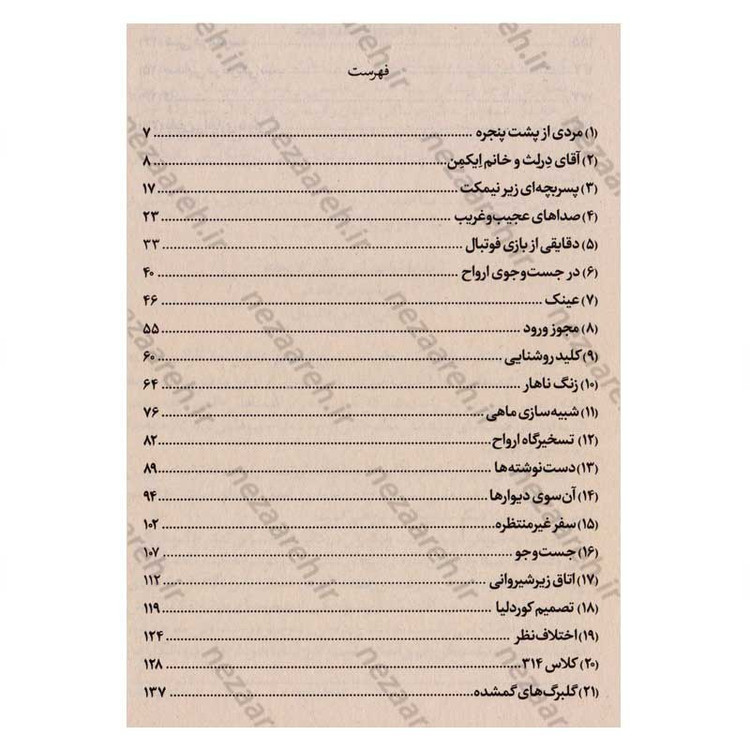 فهرست
(۱) مردی از پشت پنجره ........ ۷
(۲) آقای دِرلِث و خانم اِیکمِن ........ ۸
(۳) پسربچه‌ای زیر نیمکت ........ ۱۷
(۴) صداهای عجیب‌وغریب ........ ۲۳
(۵) دقایقی از بازی فوتبال ........ ۳۳
(۶) در جست‌وجوی ارواح ........ ۴۰
(۷) عینک ........ ۴۶
(۸) مجوز ورود ........ ۵۵
(۹) کلید روشنایی ........ ۶۰
(۱۰) زنگ ناهار ........ ۶۴
(۱۱) شبیه‌سازی ماهی ........ ۷۶
(۱۲) تسخیرگاه ارواح ........ ۸۲
(۱۳) دست‌نوشته‌ها ........ ۸۹
(۱۴) آن‌سوی دیوارها ........ ۹۴
(۱۵) سفر غیرمنتظره ........ ۱۰۲
(۱۶) جست‌وجو ........ ۱۰۷
(۱۷) اتاق زیرشیروانی ........ ۱۱۲
(۱۸) تصمیم کوردلیا ........ ۱۱۹
(۱۹) اختلاف‌نظر ........ ۱۲۴
(۲۰) کلاس ۳۱۴ ........ ۱۲۸
(۲۱) گلبرگ‌های گمشده ........ ۱۳۷
nezaareh.ir